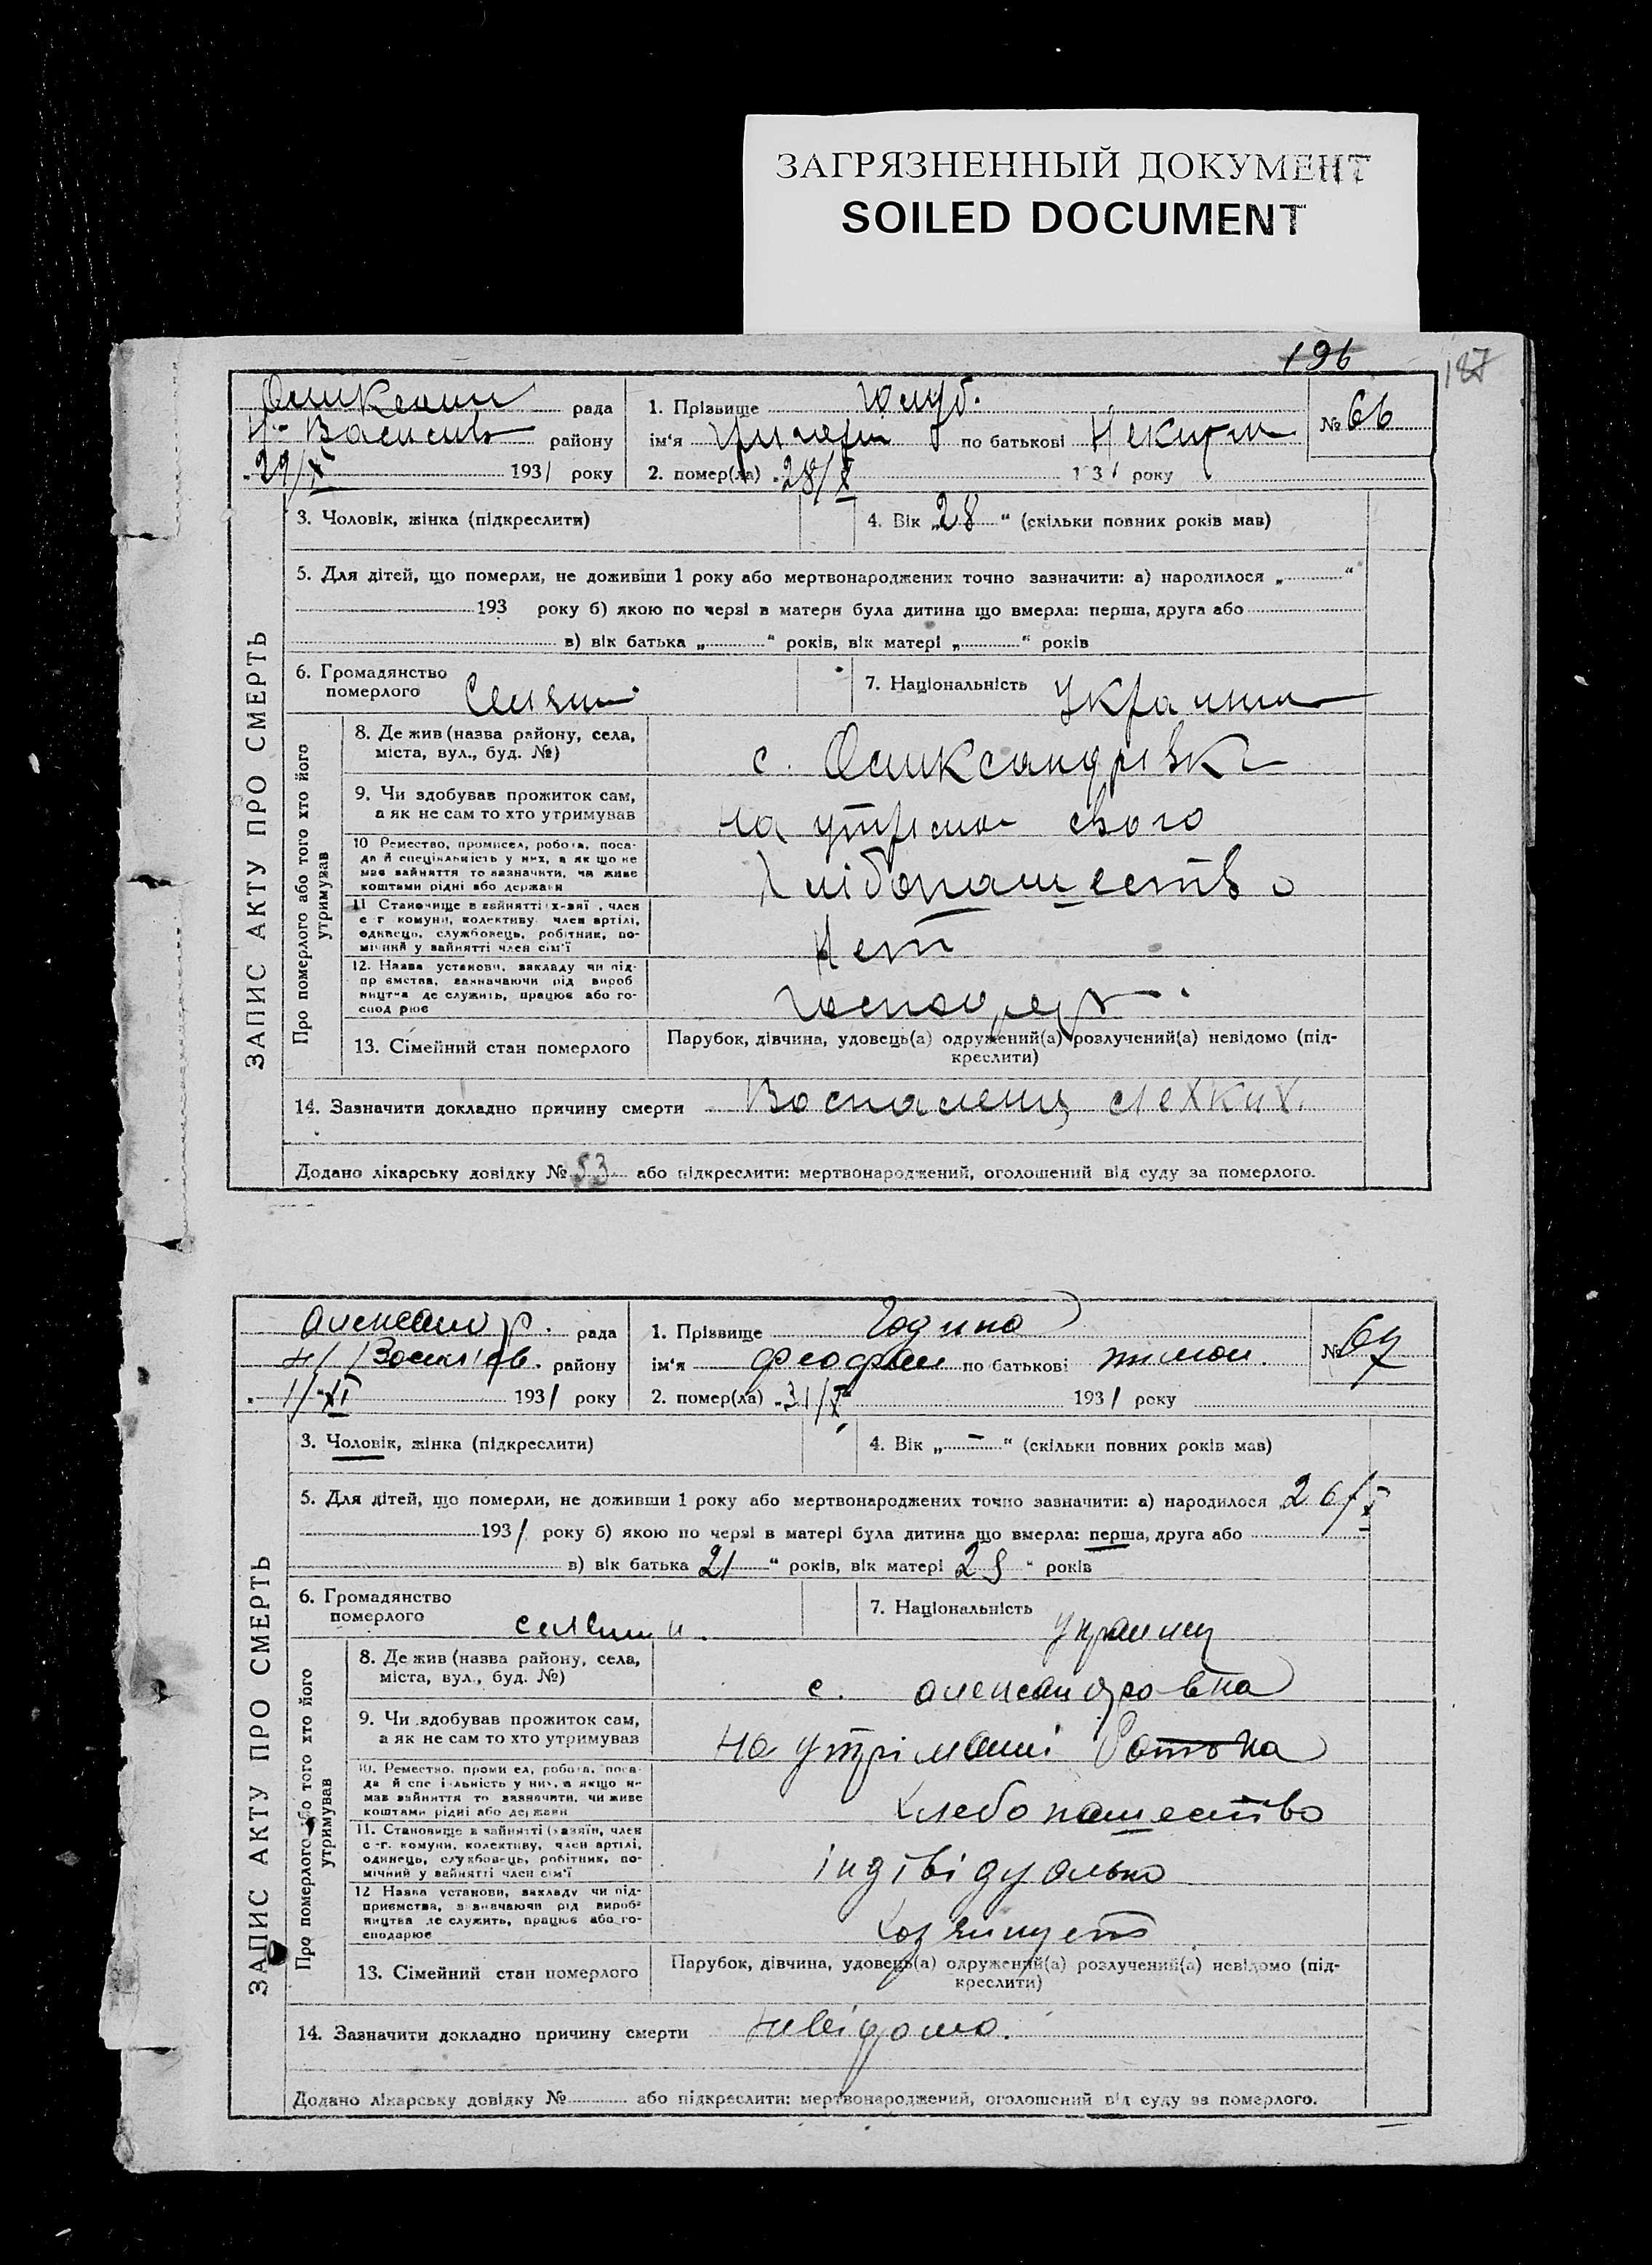 ЗАГРЯЗНЕННЫЙ ДОКУМЕНТ
SOILED DOCUMENT
196
187
ЗАПИС АКТУ ПРО СМЕРТЬ
рада
району
29/X 1931 року
1. Прізвище Голуб.
ім'я по батькові
№ 66
2. помер(ла) „28/X 1931 року
3. Чоловік, жінка (підкреслити)
4. Вік „28“ (скільки повних років мав)
5. Для дітей, що померли, не доживши 1 року або мертвонароджених точно зазначити: а) народилося „ “
193 року б) якою по черзі в матери була дитина що вмерла: перша, друга або
в) вік батька „ “ років, вік матері „ “ років
6. Громадянство
померлого Селянин
7. Національність Украинин
Про померлого або того хто його
утримував
8. Де жив (назва району, села,
міста, вул., буд. №)
с. Олександрівка
9. Чи здобував прожиток сам,
а як не сам то хто утримував
на утриман свого
10 Ремество, промисел, робота, поса-
да й спеціяльність у них, а як що не
має зайняття то зазначити, чи живе
коштами рідні або держави
Хлібопашество
11 Становище в зайнятті (х-зяї , член
с г комуни, колективу член артілі,
одинець, службовець, робітник, по-
мічний у зайнятті член сім'ї
Нет
12. Назва установи, закладу чи під-
пр ємства, зазначаючи рід вироб
ництва де служить, працює або го-
спод рює
13. Сімейний стан померлого
Парубок, дівчина, удовець(а) одружений(а) розлучений(а) невідомо (під-
креслити)
14. Зазначити докладно причину смерти Воспалениц легких.
Додано лікарську довідку № 53 або підкреслити: мертвонароджений, оголошений від суду за померлого.
ЗАПИС АКТУ ПРО СМЕРТЬ
Александр. рада
Н/Васил'їв. району
„1/XI 1931 року
1. Прізвище Година
ім'я Феофан по батькові тимон.
№ 67
2. помер(ла) „31/X 1931 року
3. Чоловік, жінка (підкреслити)
4. Вік „–“ (скільки повних років мав)
5. Для дітей, що померли, не доживши 1 року або мертвонароджених точно зазначити: а) народилося 26/X
1931 року б) якою по черзі в матері була дитина що вмерла: перша, друга або
в) вік батька 21 “ років, вік матері “ років
6. Громадянство
померлого селянин.
7. Національність украинец
Про померлого або того хто його
утримував
8. Де жив (назва району, села,
міста, вул., буд. №)
с. александровка
9. Чи здобував прожиток сам,
а як не сам то хто утримував
на утріманні батька
10. Ремество, проми ел, робота, поса-
да й спе і льність у них, а якщо не
має зайняття то зазначити, чи живе
коштами рідні або держави
хлебопашество
11. Становище в зайнятті (хазяїн, член
с -г. комуни, колективу, член артілі,
одинець, службовець, робітник, по-
мічний у зайнятті член сім'ї
індівідуально
12 Назва установи, закладу чи під-
приємства, зазначаючи рід вироб-
ництва де служить, працює або го-
сподарює
хозяинует
13. Сімейний стан померлого
Парубок, дівчина, удовець(а) одружений(а) розлучений(а) невідомо (під-
креслити)
14. Зазначити докладно причину смерти невідомо.
Додано лікарську довідку № або підкреслити: мертвонароджений, оголошений від суду за померлого.